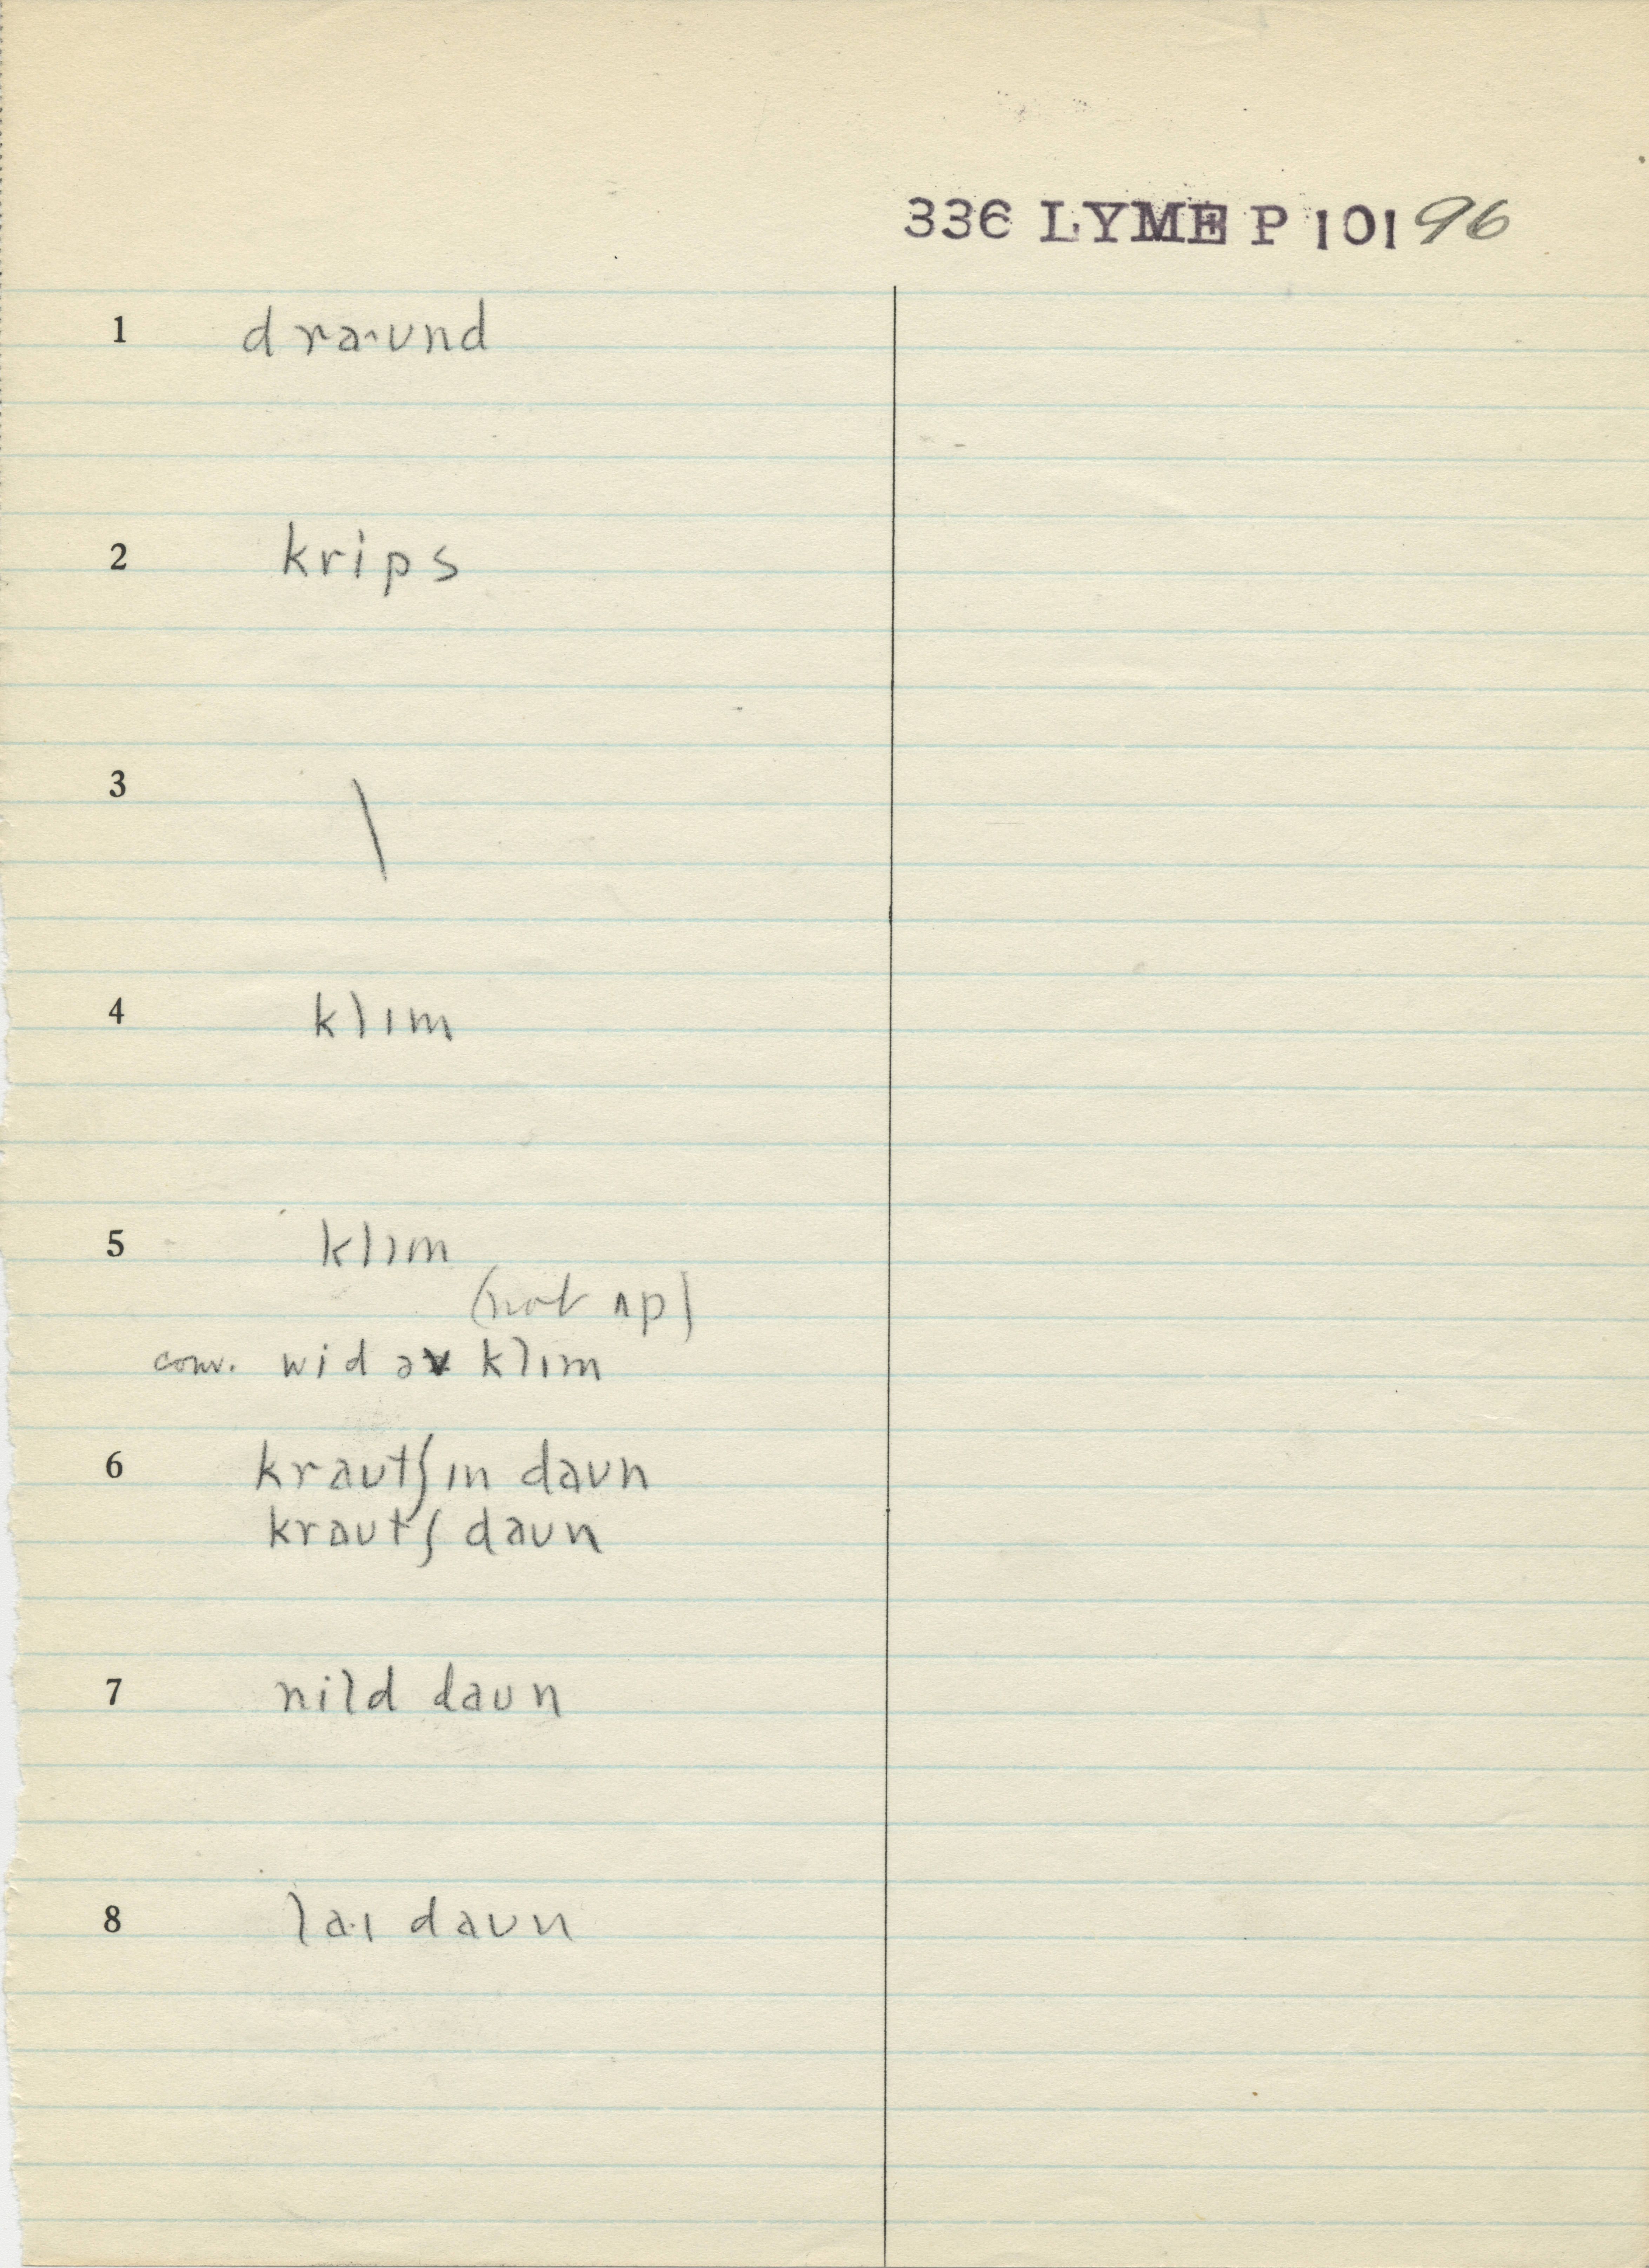 336 LYME P 101 96
1 draˑʊnd
2 krips
3 \
4 klɪm
5 klɪm
(not ʌp)
conv. wid əv klɪm
6 kraʊtʃɪn daʊn
kraʊtʃ daʊn
7 nild daʊn
8 laˑɪ daʊn